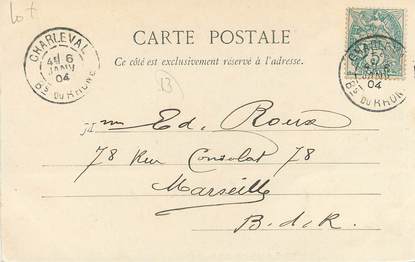 Lot
CHARLEVAL
6
JANV
04
Bes DU RHONE
CARTE POSTALE
Ce côté est exclusivement réservé à l'adresse.
CHARLEVAL
JANV
04
Bes DU RHONE
13
Mme Ed. Roux
78 Rue Consolat 78
Marseille
B. d. R.